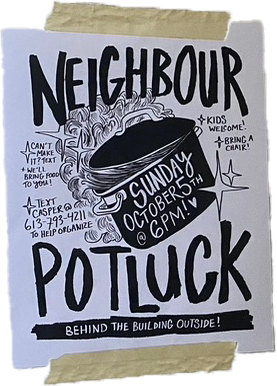 NEIGHBOUR
CAN'T
MAKE
IT? TEXT
+ WE'LL
BRING FOOD
TO YOU!
TEXT
CASPER @
613-793-4211
TO HELP ORGANIZE
KIDS
WELCOME!
BRING A
CHAIR!
SUNDAY
OCTOBER 5TH
@ 6PM!
POTLUCK
BEHIND THE BUILDING OUTSIDE!